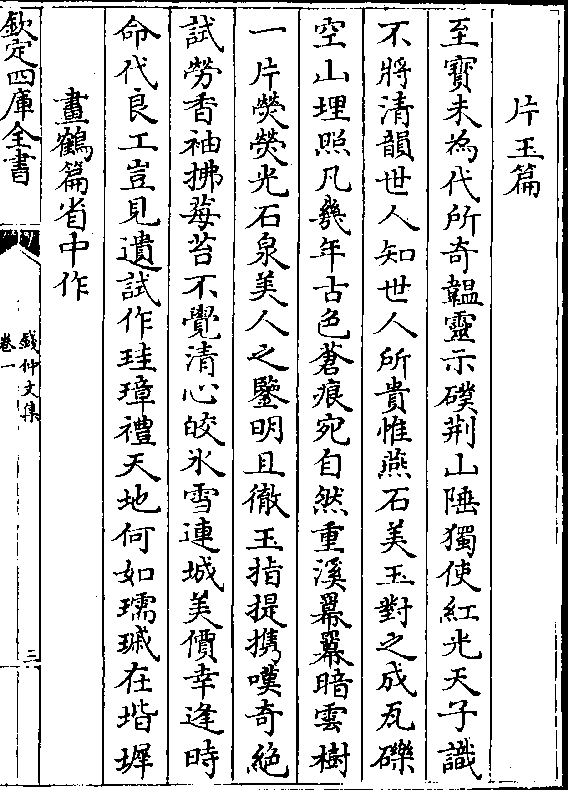 片玉篇
至寳未為代所奇韞靈示璞荆山陲獨使紅光天子識
不將清韻世人知世人所貴惟燕石美玉對之成瓦礫
空山埋照凡幾年古色蒼痕宛自然重溪羃羃暗雲樹
一片熒熒光石泉美人之鑒明且徹玉指提携嘆奇絶
試勞香袖拂莓苔不覺清心皎氷雪連城美價幸逢時
命代良工豈見遺試作珪璋禮天地何如㻪瑊在堦墀
畫鶴篇省中作
欽定四庫全書
錢仲文集
卷一
三